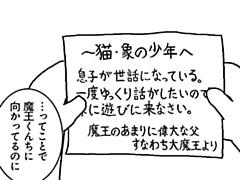 ～猫・象の少年へ
息子が世話になっている。
一度ゆっくり話がしたいので
に遊びに来なさい。
魔王のあまりに偉大な父
すなわち大魔王より
…ってことで
魔王くんちに
向かってるのに